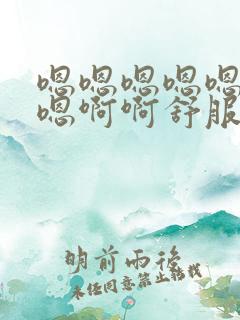 嗯嗯嗯嗯嗯
嗯啊啊舒服
明前雨后
未经同意禁止转载